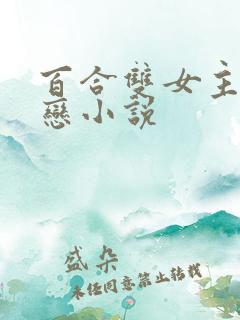 百合雙女主
戀小說
盛朵
未任同意禁止轉載